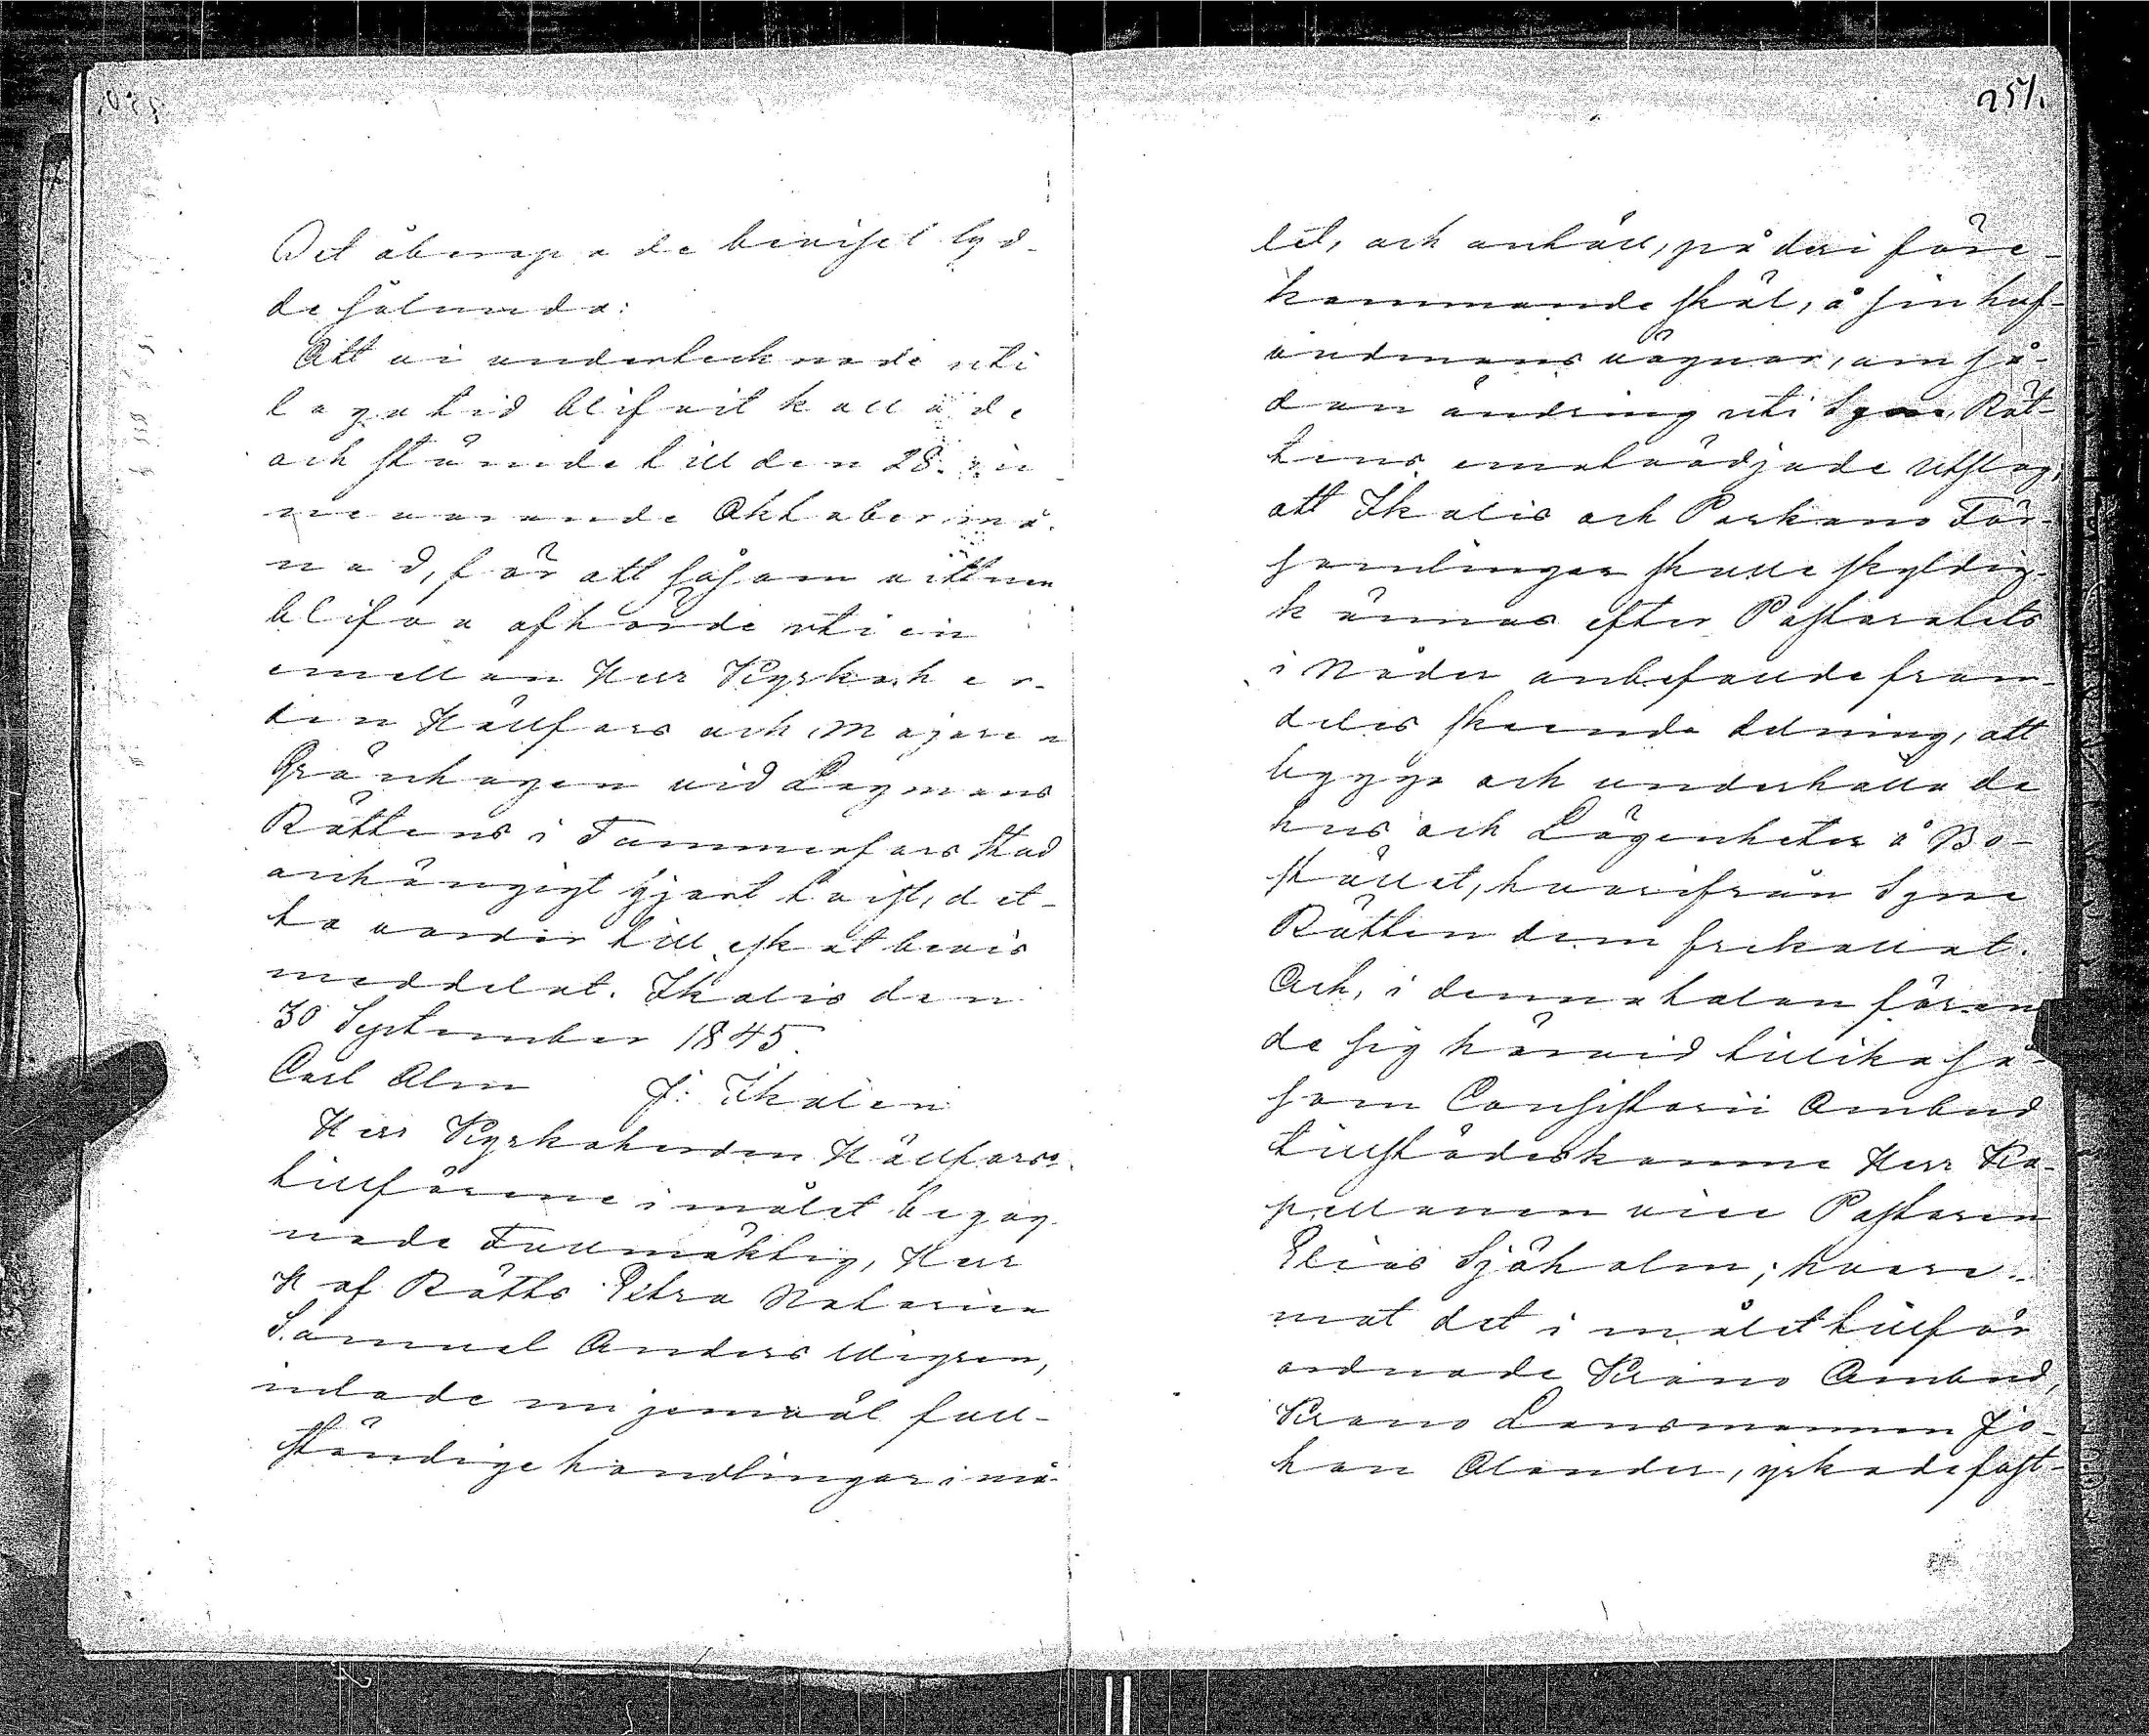 Det åberopade beviset lyd-
de sålunda:
Att vi undertecknade uti
laga tid blifvit kallade
och stämde till den 28. in
nevarande Oktober må-
nad, för att såsom vittnen
blifva afhörde uti en
emellan Herr Kyrkoher-
den Hällfors och Majoren
Grönhagen vid Lagmans
Rättens i Tammerfors stad
anhängigt gjord tvist, det-
ta varder till eskat bevis
meddelat. Ikalis den
30 September 1845.
Carl Alm J: Ikalén
Herr Kyrkoherden Hällfors
tillförene i målet begag-
nade Fullmäktig, Herr
Hof Rätts Extra Notarien
Samuel Anders Wigren,
inlade nu jemväl full-
ständige handlingar i må-
251.
let, och anhöll, på deri före-
kommande skäl, å sin huf-
vudmans vägnar, om så-
dan ändring uti Syne Rät-
tens emotvädjade Utslag,
att Ikalis och Parkano För-
samlingar skulle skyldig
kännas efter Pastoratets
i Nåder anbefallde fram-
deles skeende delning, att
bygga och underhålla de
hus och Lägenheter å Bo-
stället, hvarifrån Syne
Rätten dem frikallat.
Och, i denna talan, fören
de sig härvid tillika så-
som Consistorii Ombud
tillstädeskomne Herr Ka-
pellanen vice Pastoren
Elias Sjöholm; hvare-
mot det i målet tillför
ordnade Krono Ombud,
Krono Lansmannen Jo-
han Alander, yrkade fast-